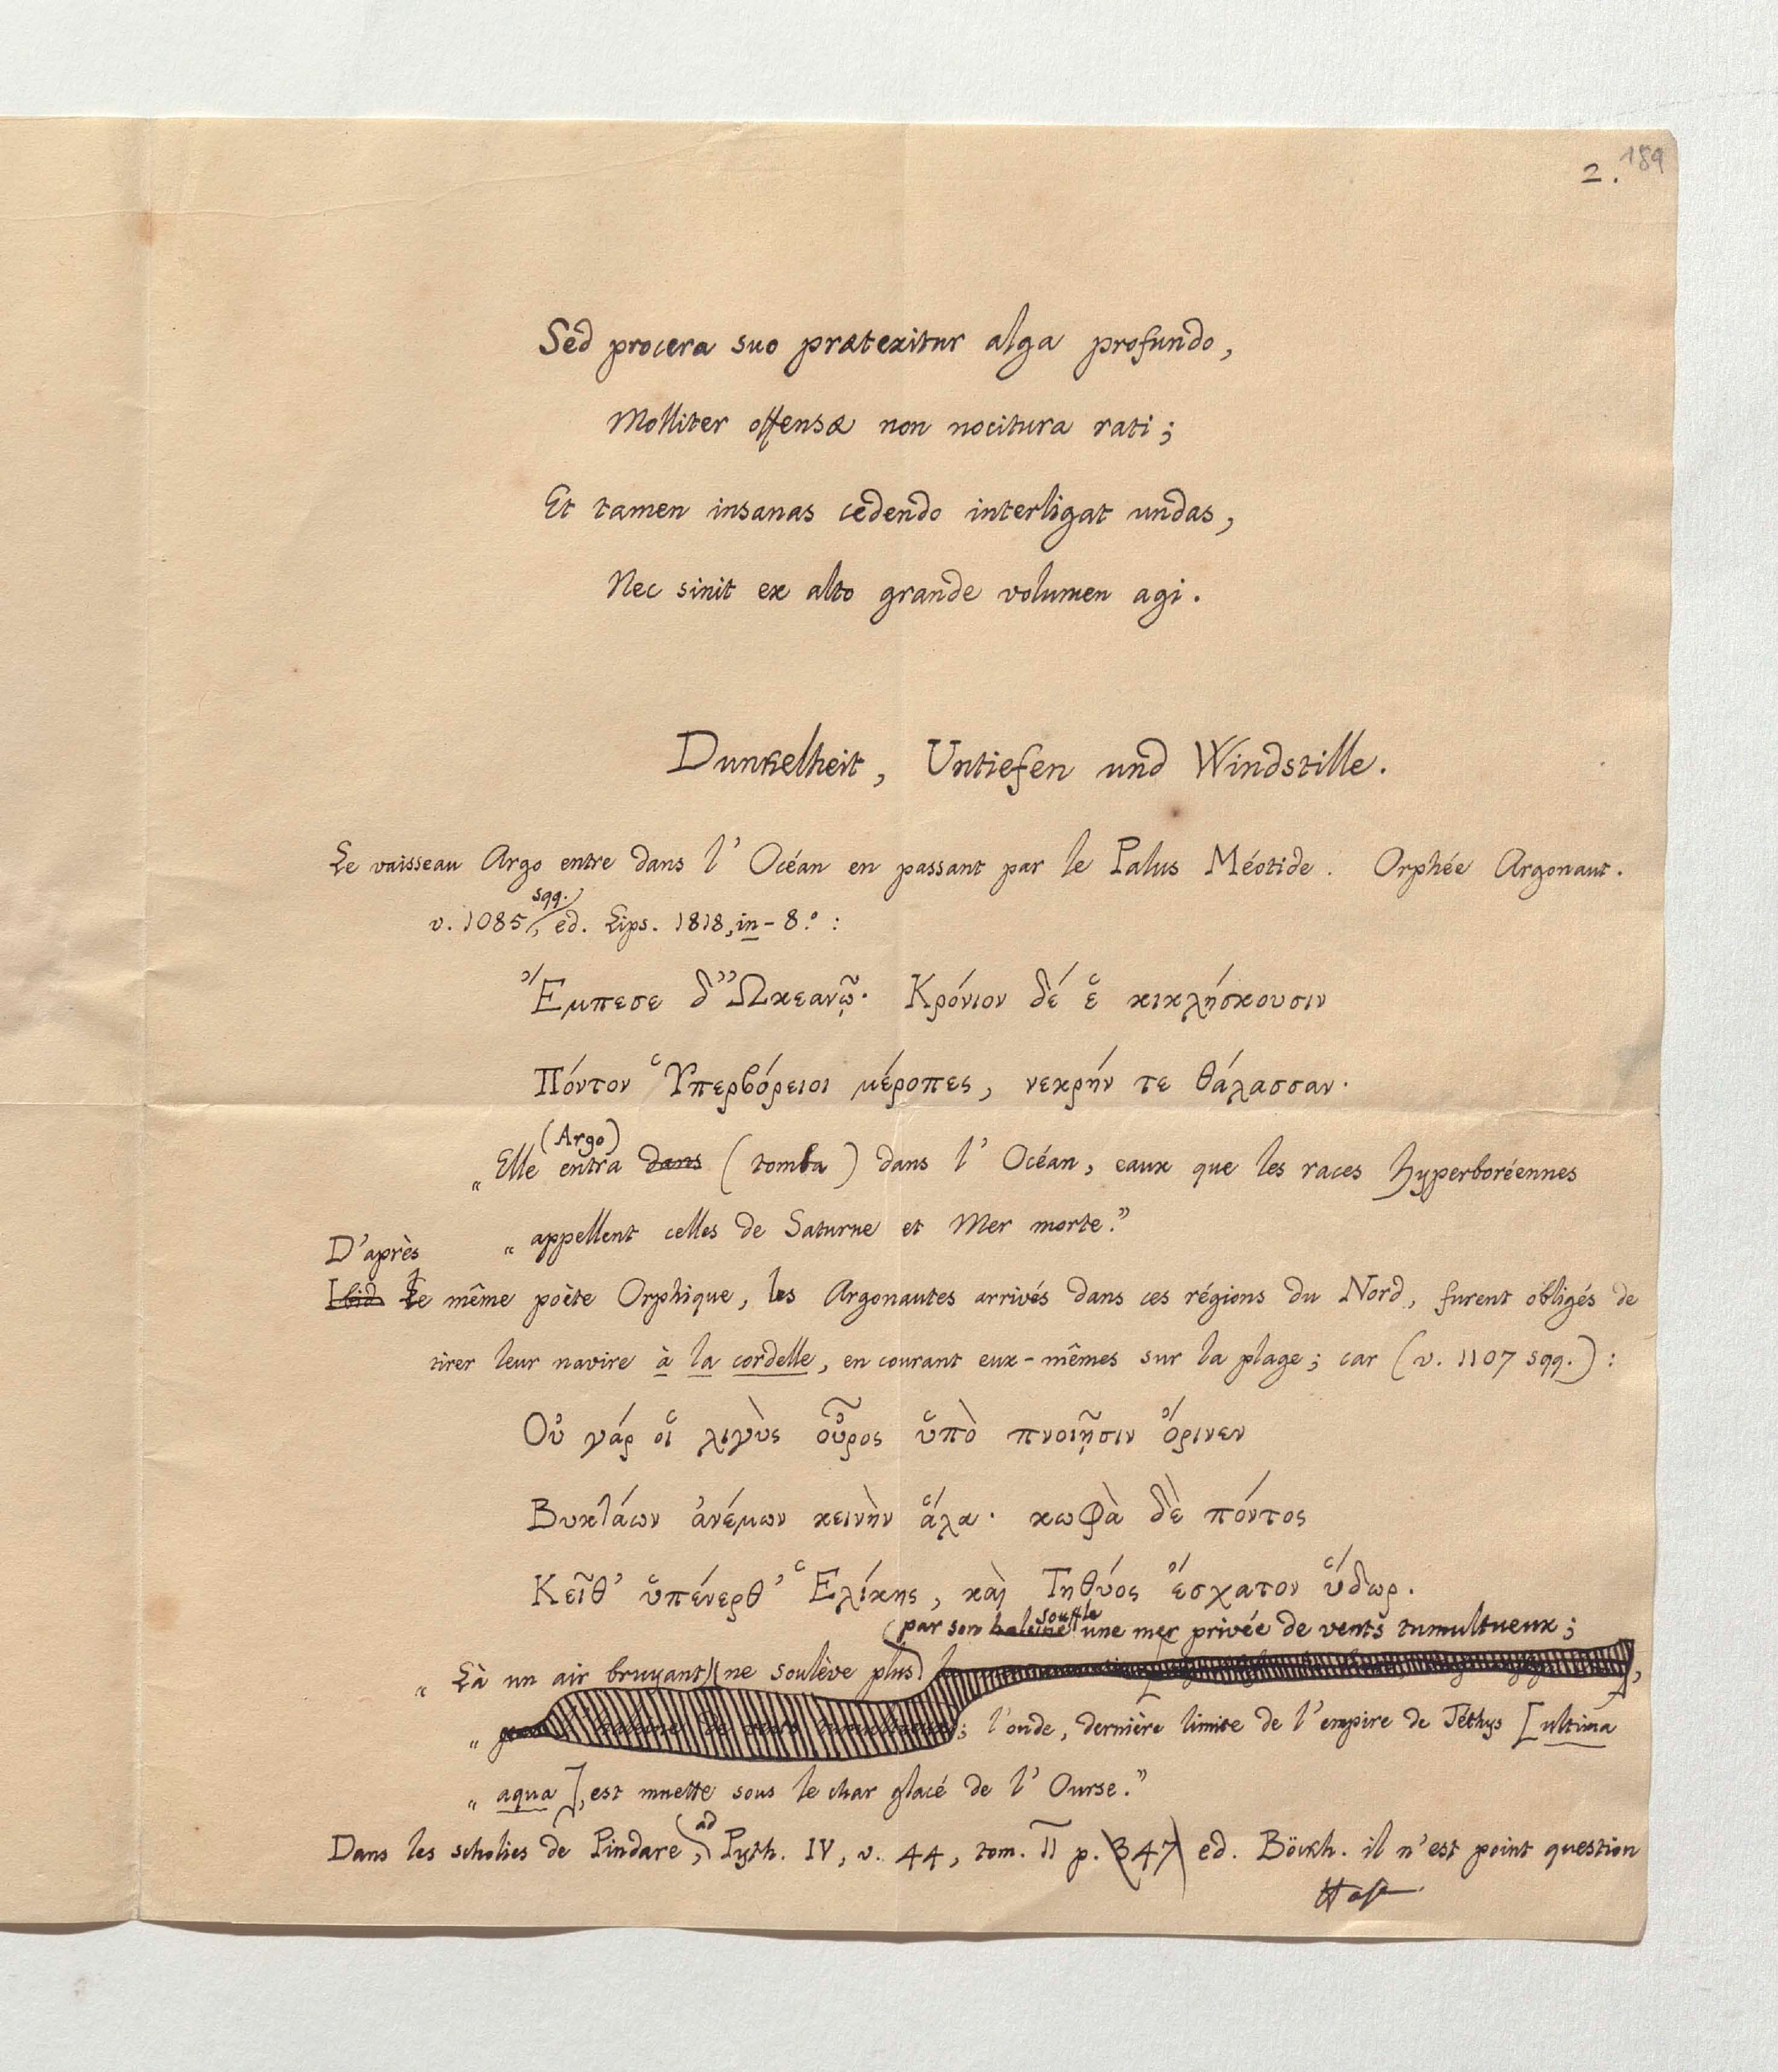 2. 189
Sed procera suo prætexitur alga profundo,
Molliter offensæ non nocitura rati;
Et tamen insanas cedendo interligat undas,
Nec sinit ex alto grande volumen agi.
Dunkelheit, Untiefen und Windstille.
Le vaisseau Argo entre dans l'Océan en passant par le Palus Méotide. Orphée Argonaut.
v. 1085 sqq., ed. Lips. 1818, in-8.º:
Ἔμπεσε δ' Ὠκεανῷ· Κρόνιον δέ ἓ κικλήσκουσιν
Πόντον Ὑπερβόρειοι μέροπες, νεκρήν τε θάλασσαν.
„Elle (Argo) entra dans (tomba) dans l'Océan, eaux que les races hyperboréennes
„appellent celles de Saturne et Mer morte."
D'après
Ibid le même poète Orphique, les Argonautes arrivés dans ces régions du Nord, furent obligés de
tirer leur navire à la cordelle, en courant eux-mêmes sur la plage; car (v. 1107 sqq.):
Οὐ γάρ οἵ λιγὺς οὖρος ὕπὸ πνοιῇσιν ὄρινεν
Βυκτάων ἀνέμων κεινὴν ἅλα· κωφὰ δὲ πόντος
Κεῖθ' ὕπένερθ' Ἑλίκης, καὶ Τηθύος ἔσχατον ὕδωρ.
par son haleine souffle une mer privée de vents tumultueux;
„Là un air bruyant ne soulève plus
„; l'onde, dernière limite de l'empire de Téthys [ultima
„aqua], est muette sous le char glacé de l'Ourse."
Dans les scholies de Pindare, ad Pyth. IV, v. 44, tom. II p. 347 ed. Böckh. il n'est point question
Hase